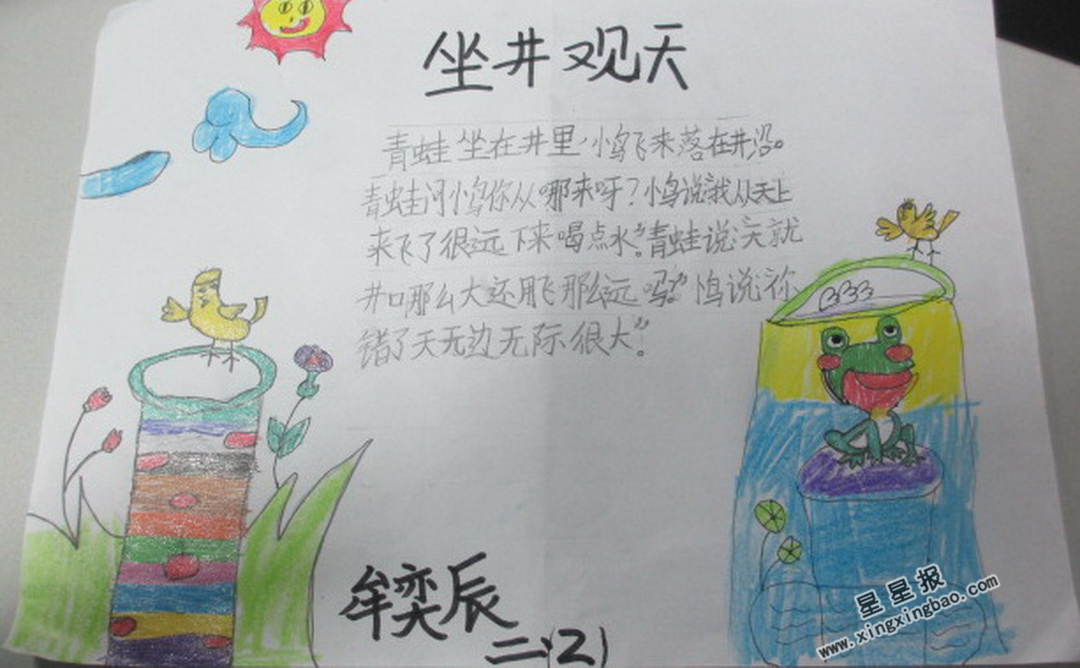 坐井观天
青蛙坐在井里,小鸟飞来落在井沿。
青蛙问小鸟你从哪来呀?小鸟说我从天上
来飞了很远下来喝点水”。青蛙说天就
井口那么大还用飞那么远吗”。小鸟说你
错了天无边无际很大”。
牟奕辰
二(2)
星星报
www.xingxingbao.com